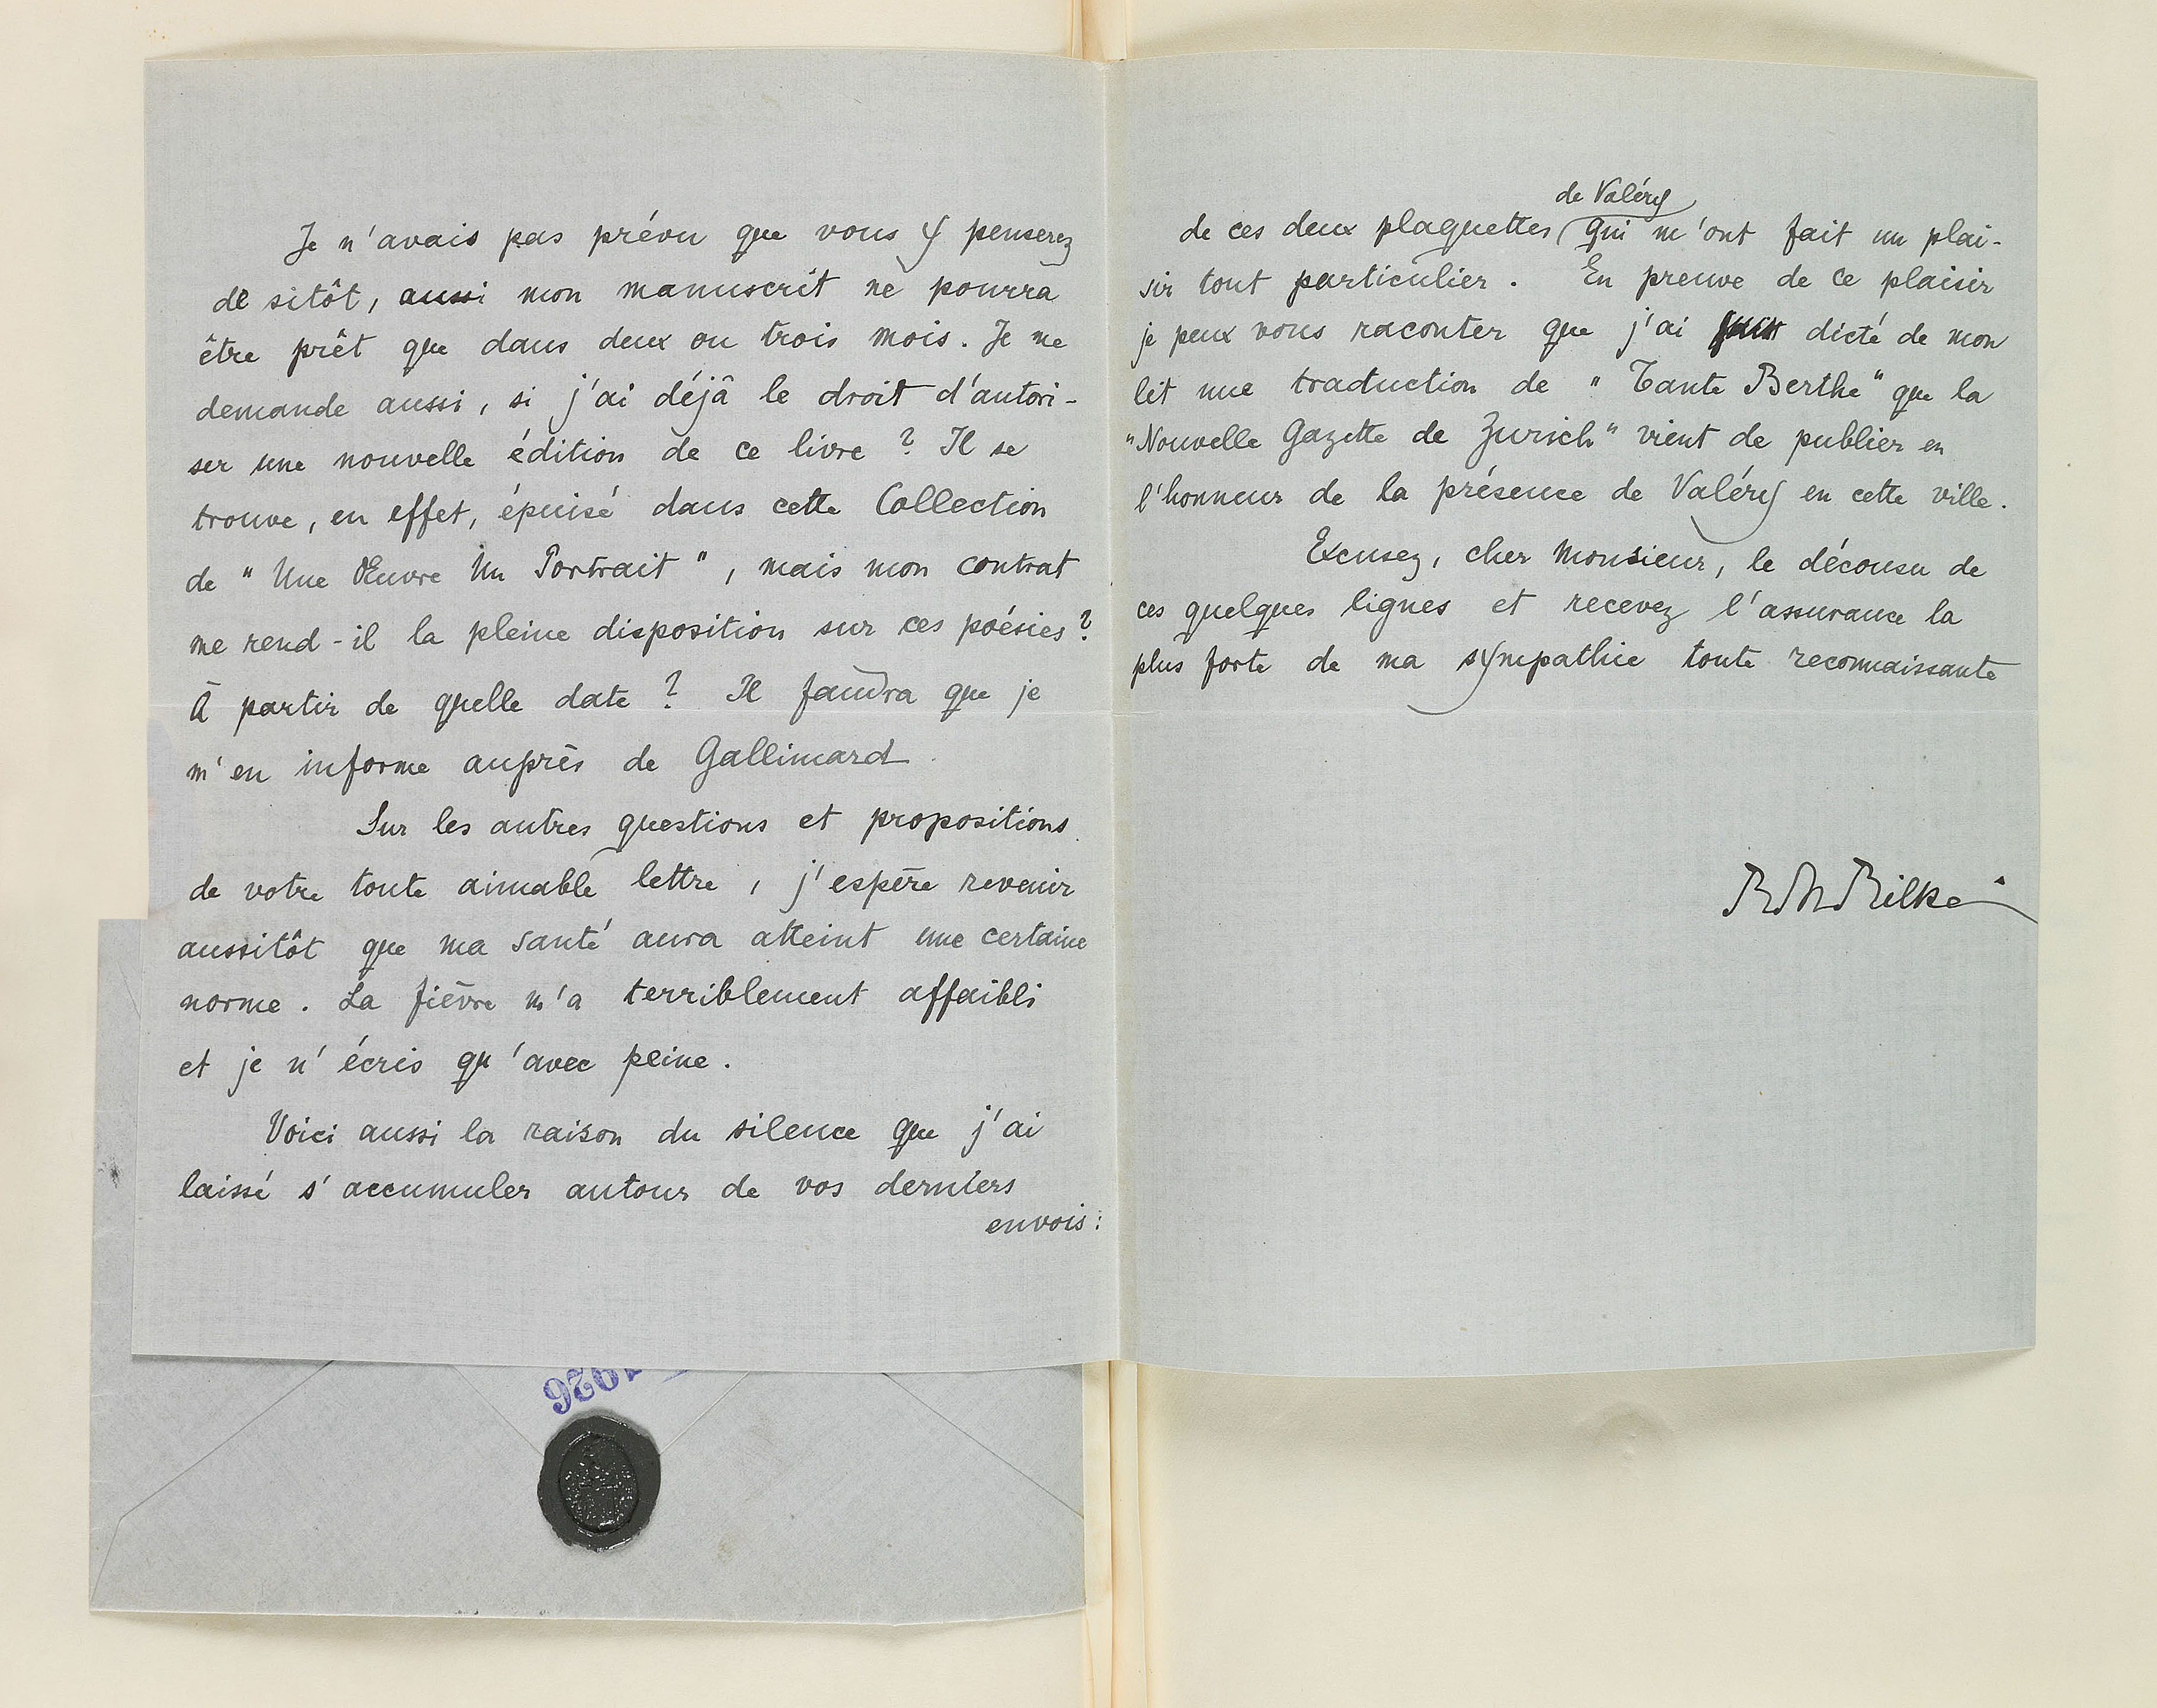 Je n'avais pas prévu que vous y penserez
de sitôt, aussi mon manuscrit ne pourra
être prêt que dans deux ou trois mois. Je me
demande aussi, si j'ai déjà le droit d'autori-
ser une nouvelle édition de ce livre ? Il se
trouve, en effet, épuisé dans cette Collection
de " Une Œuvre Un Portrait ", mais mon contrat
me rend-il la pleine disposition sur ces poésies ?
À partir de quelle date ? Il faudra que je
m'en informe auprès de Gallimard.
Sur les autres questions et propositions
de votre toute aimable lettre, j'espère revenir
aussitôt que ma santé aura atteint une certaine
norme. La fièvre m'a terriblement affaibli
et je n'écris qu'avec peine.
Voici aussi la raison du silence que j'ai
laissé s'accumuler autour de vos derniers
envois :
1926
de Valéry
de ces deux plaquettes qui m'ont fait un plai-
sir tout particulier. En preuve de ce plaisir
je peux vous raconter que j'ai dicté de mon
lit une traduction de " Tante Berthe " que la
"Nouvelle Gazette de Zurich" vient de publier en
l'honneur de la présence de Valéry en cette ville.
Excusez, cher Monsieur, le décousu de
ces quelques lignes et recevez l'assurance la
plus forte de ma sympathie toute reconnaissante
RM Rilke